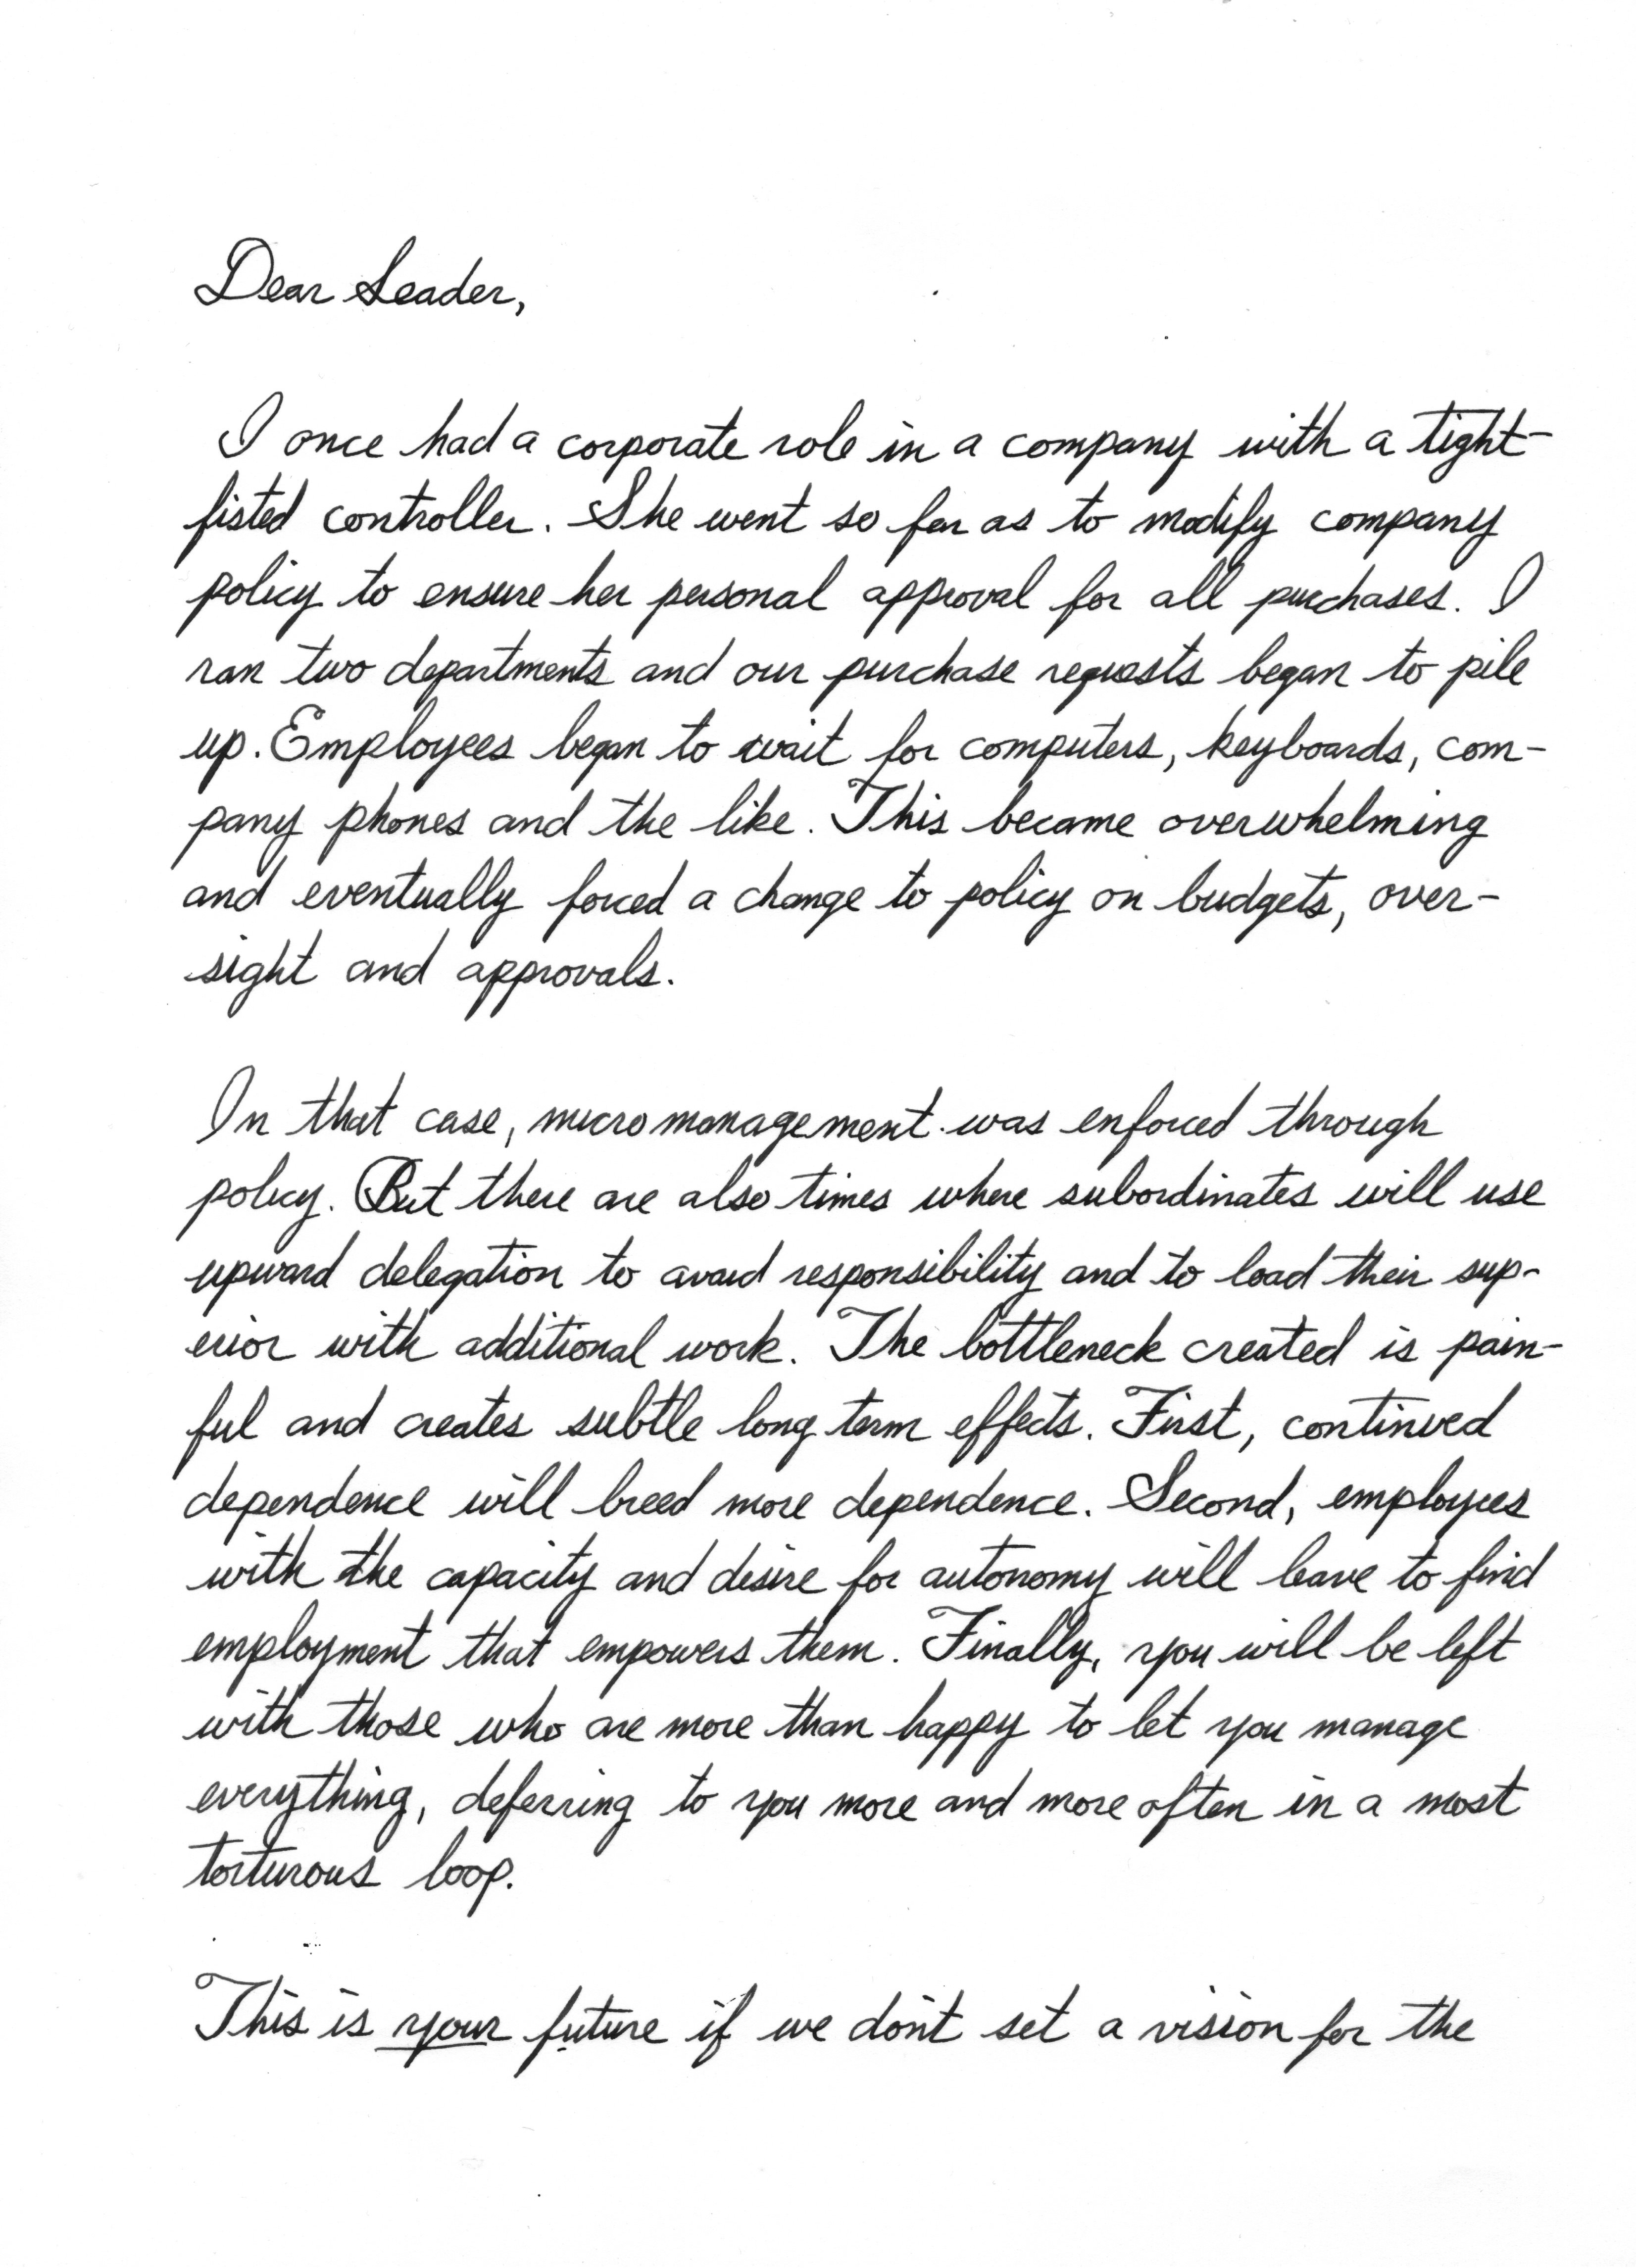 Dear Leader,
I once had a corporate role in a company with a tight-
fisted controller. She went so far as to modify company
policy to ensure her personal approval for all purchases. I
ran two departments and our purchase requests began to pile
up. Employees began to wait for computers, keyboards, com-
pany phones and the like. This became overwhelming
and eventually forced a change to policy on budgets, over-
sight and approvals.
In that case, micromanagement was enforced through
policy. But there are also times where subordinates will use
upward delegation to avoid responsibility and to load their sup-
erior with additional work. The bottleneck created is pain-
ful and creates subtle long term effects. First, continued
dependence will breed more dependence. Second, employees
with the capacity and desire for autonomy will leave to find
employment that empowers them. Finally, you will be left
with those who are more than happy to let you manage
everything, deferring to you more and more often in a most
torturous loop.
This is your future if we don't set a vision for the